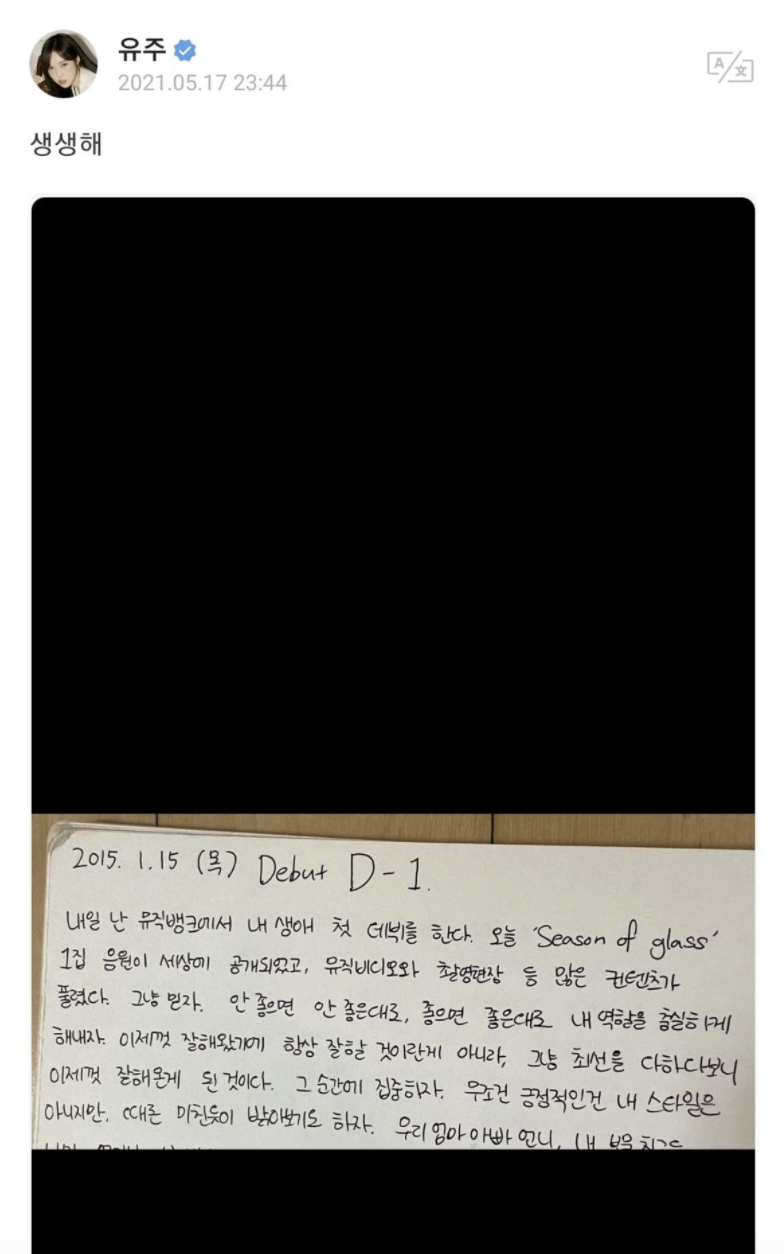 유주
2021.05.17 23:44
생생해
2015. 1.15 (목) Debut D-1.
내일 난 뮤직뱅크에서 내 생애 첫 데뷔를 한다. 오늘 'Season of glass'
1집 음원이 세상에 공개되었고, 뮤직비디오와 촬영현장 등 많은 컨텐츠가
풀렸다. 그냥 믿자. 안 좋으면 안 좋은대로, 좋으면 좋은대로 내 역할을 충실하게
해내자. 이제껏 잘해왔기에 항상 잘할 것이란게 아니라, 그냥 최선을 다하다보니
이제껏 잘해온게 된 것이다. 그 순간에 집중하자. 무조건 긍정적인건 내 스타일은
아니지만, 때론 미친듯이 밝아보기도 하자. 우리 엄마 아빠 언니, 내